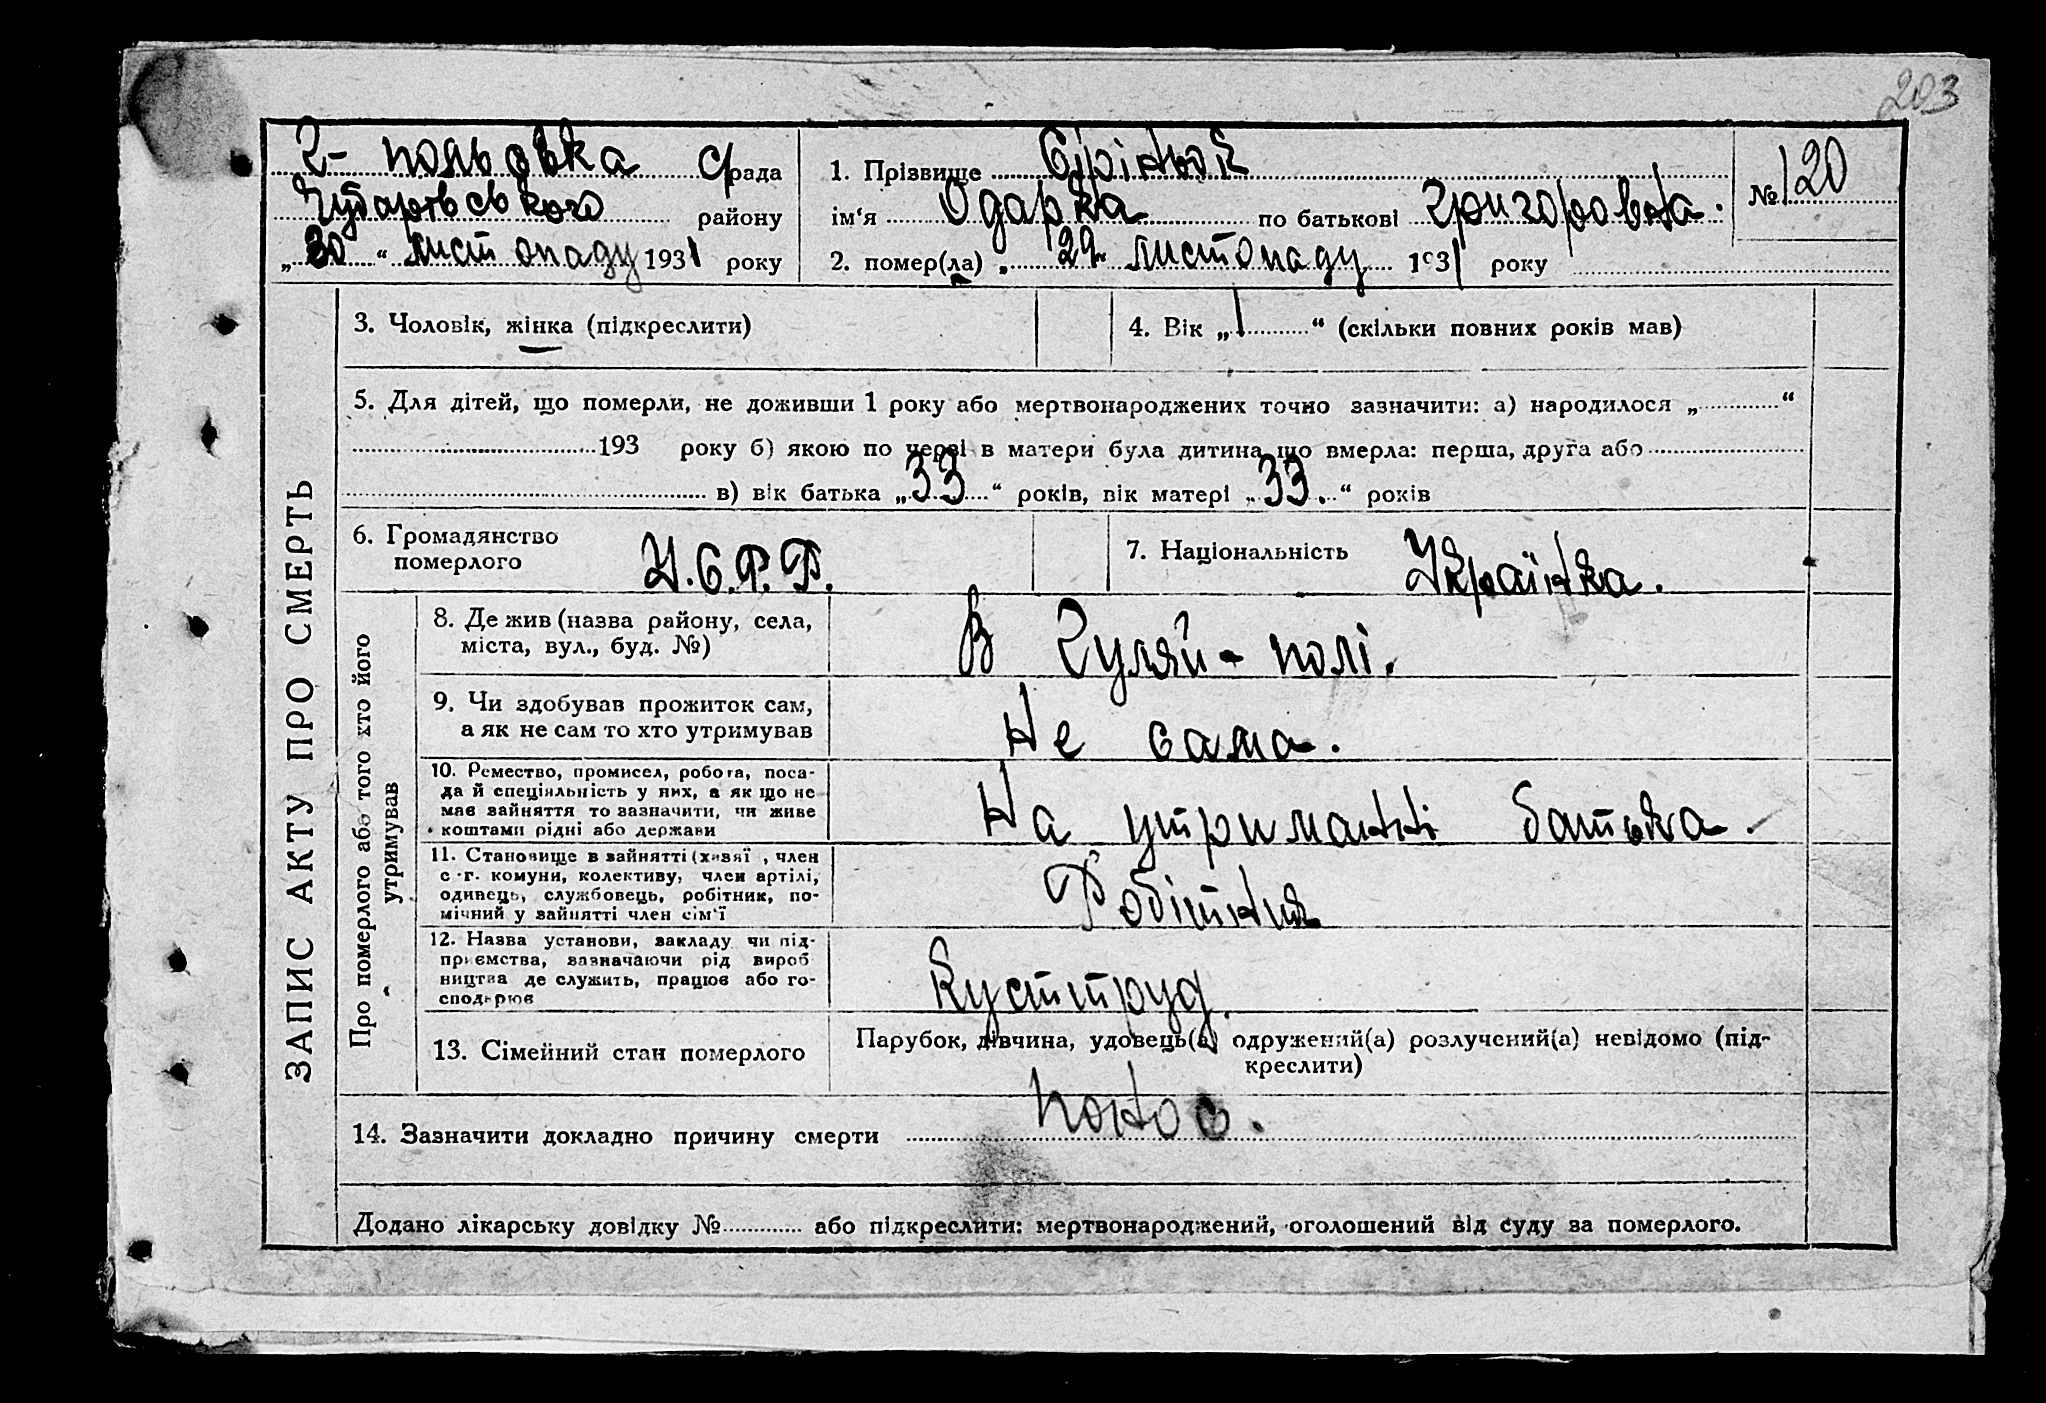 203
Г- польовка с/рада
Чубарівського району
„30“ листопаду 1931 року
1. Прізвище
ім‘я Одарка по батькові Григоровна.
2. помер(ла) „29„ листопаду 1931 року
№ 120
ЗАПИС АКТУ ПРО СМЕРТЬ
3. Чоловік, жінка (підкреслити)
4. Вік „1“ (скільки повних років мав)
5. Для дітей, що померли, не доживши 1 року або мертвонароджених точно зазначити: а) народилося „ “
193 року б) якою по черзі в матери була дитина що вмерла: перша, друга або
в) вік батька „33“ років, вік матері „33.“ років
6. Громадянство
померлого
У.С.Р.Р.
7. Національність Українка.
Про померлого або того хто його
утримував
8. Де жив (назва району, села,
міста, вул., буд. №)
В Гуляй-полі.
9. Чи здобував прожиток сам,
а як не сам то хто утримував
Не сама.
10. Ремество, промисел, робота, поса-
да й спеціяльність у них, а як що не
мав зайняття то зазначити, чи живе
коштами рідні або держави
На утриманні батька.
11. Становище в зайнятті (хазяї , член
с.-г. комуни, колективу, член артілі,
одинець, службовець, робітник, по-
мічний у зайнятті член сім‘ї
Робітник
12. Назва установи, закладу чи під-
приємства, зазначаючи рід вироб
ництва де служить, працює або го-
сподарює
Кустпруд.
13. Сімейний стан померлого
Парубок, дівчина, удовець(а) одружений(а) розлучений(а) невідомо (під-
креслити)
14. Зазначити докладно причину смерти Понос.
Додано лікарську довідку № або підкреслити: мертвонароджений, оголошений від суду за померлого.